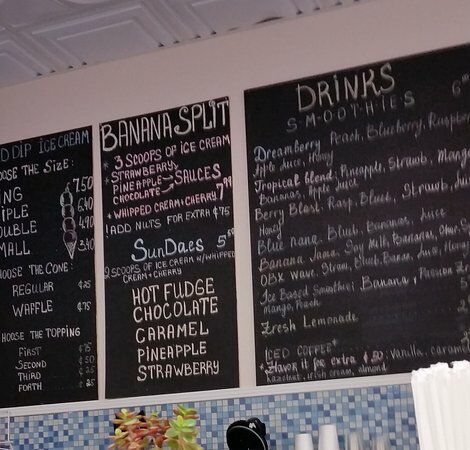 D DIP ICE CREAM
OOSE THE SIZE:
ING 7.50
IPLE 6.40
OUBLE 4.90
MALL 3.40
HOOSE THE CONE:
REGULAR ¢25
WAFFLE ¢75
HOOSE THE TOPPING
FIRST ¢75
SECOND ¢50
THIRD ¢25
FORTH ¢25
BANANA SPLIT
* 3 SCOOPS OF ICE CREAM
* STRAWBERRY
PINEAPPLE → SAUCES
CHOCOLATE
* WHIPPED CREAM & CHERRY 7.99
! ADD NUTS FOR EXTRA ¢75
SunDaes 5
2 SCOOPS OF ICE CREAM W/WHIPPED
CREAM + CHERRY
HOT FUDGE
CHOCOLATE
CARAMEL
PINEAPPLE
STRAWBERRY
DRINKS
SMOOTHIES 6
Dreamberry Peach, Blueberry, Raspb
Apple Juice, Honey
Tropical blend: Pineapple, Strawb, Mango
Bananas, Apple Juice
Berry Blast, Rasp, Blue, Strawb, Juic
Honey
Blue nana. Blueb, Bananas, Juice
Banana Jama, Soy Milk, Bananas,
OBX Wave. Straw, Blueb, Banan, Juice,
Ice Based Smoothies: Banana, Passion F
Mango, Peach
Fresh Lemonade
ICED COFFEE*
* Flavor it for extra ¢50: Vanilla, carame
hazelnut, irish cream, almond